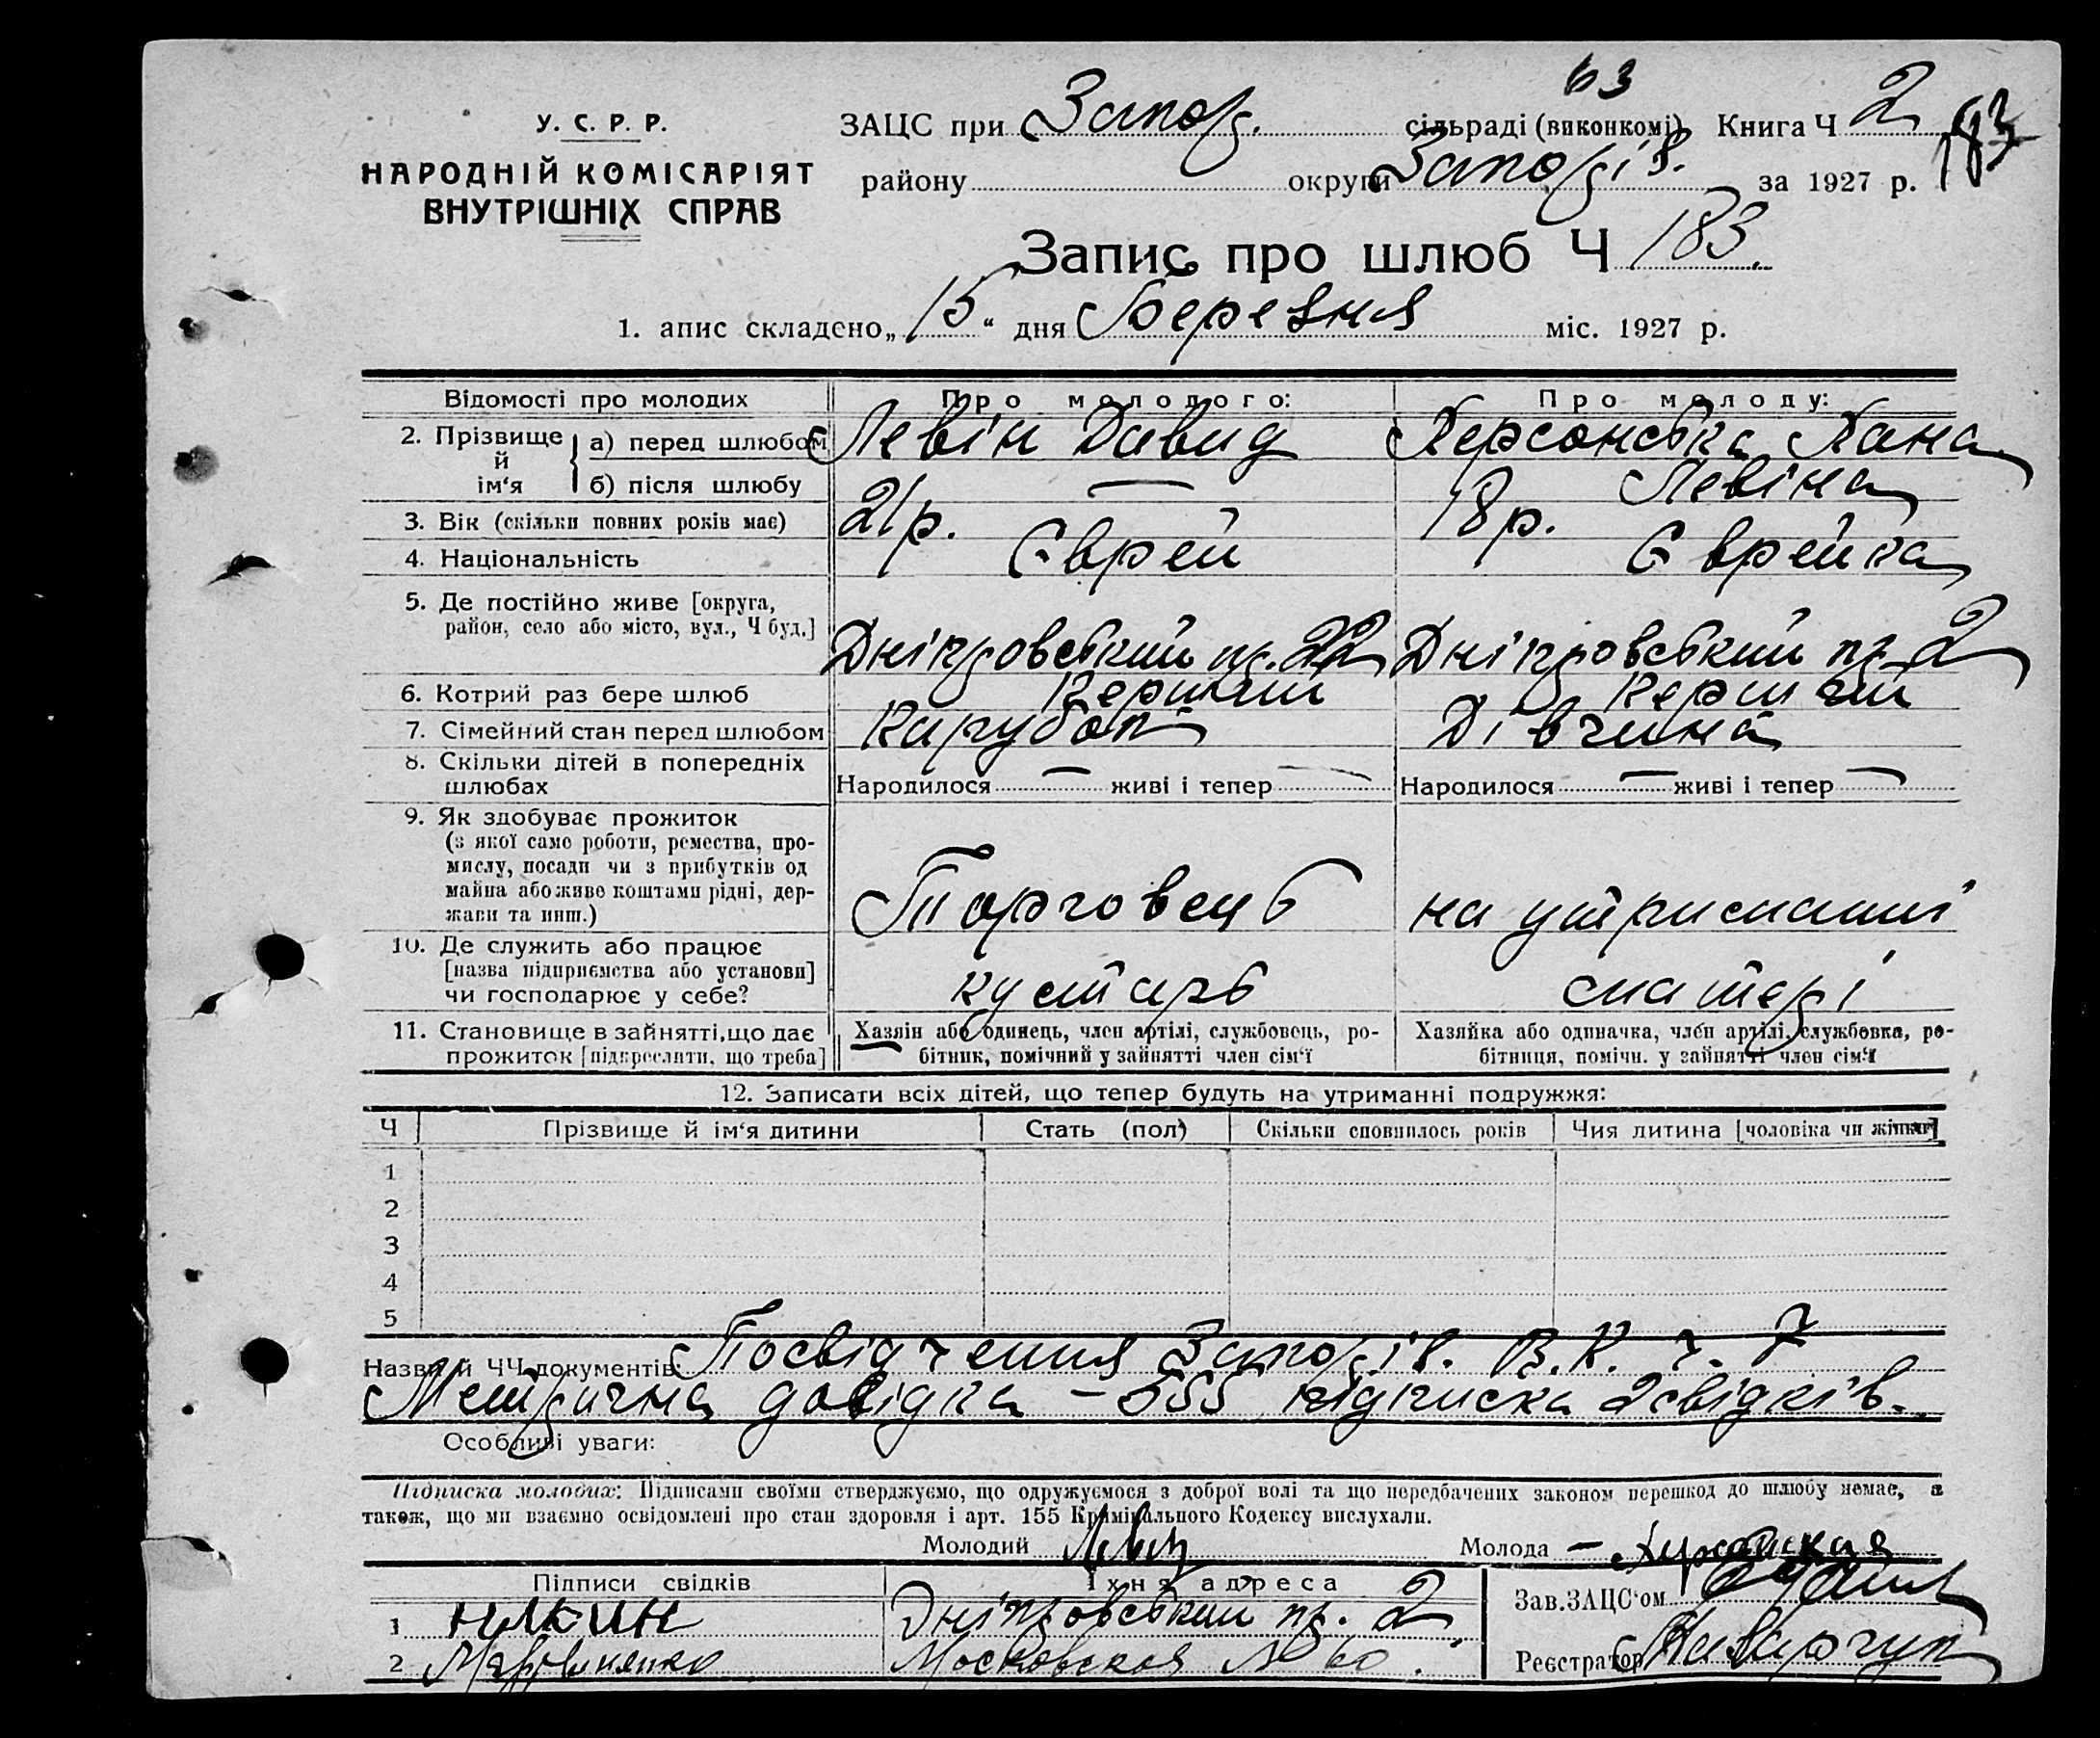 63
У. С. Р. Р.
НАРОДНІЙ КОМІСАРІЯТ
ВНУТРІШНІХ СПРАВ
ЗАЦС при Запор. сільраді (виконкомі) Книга Ч 2
183
району округи Запоріз. за 1927 р.
Запис про шлюб Ч 183.
1. апис складено „ 15 “ дня Березня міс. 1927 р.
Відомості про молодих Про молодого: Про молоду:
2. Прізвище й ім‘я а) перед шлюбом Левін Давид Херсонська Хана
б) після шлюбу — Левіна
3. Вік (скільки повних років має) 21 р. 18 р.
4. Національність Єврей Єврейка
5. Де постійно живе [округа,
район, село або місто, вул., Ч буд.] Дніпровський пр. 22 Дніпровський пр. 2
6. Котрий раз бере шлюб Перший Перший
7. Сімейний стан перед шлюбом Парубок Дівчина
8. Скільки дітей в попередніх
шлюбах Народилося — живі і тепер — Народилося — живі і тепер —
9. Як здобуває прожиток
(з якої само роботи, ремества, про-
мислу, посади чи з прибутків од
майна або живе коштами рідні, дер-
жави та инш.) Торговець на утриманні
10. Де служить або працює
[назва підприємства або установи]
чи господарює у себе? кустарь матері
11. Становище в зайнятті, що дає
прожиток [підкреслити, що треба]
Хазяін або одинець, член артілі, службовець, ро-
бітник, помічний у зайнятті член сім‘ї
Хазяйка або одиначка, член артілі, службовка, ро-
бітниця, помічн. у зайнятті член сім‘ї
12. Записати всіх дітей, що тепер будуть на утриманні подружжя:
Ч Прізвище й ім‘я дитини Стать (пол) Скільки сповнилось років Чия дитина [чоловіка чи жінки]
1
2
3
4
5
Назви й ЧЧ документів: Посвідчення Запоріз. В.К. ч. 7
Метрична довідка – 555 підписка 2 свідків.
Особливі уваги:
Підписка молодих: Підписами своїми стверджуємо, що одружуємося з доброї волі та що передбачених законом перешкод до шлюбу немає, а
також, що ми взаємно освідомлені про стан здоровля і арт. 155 Крімінального Кодексу вислухали.
Молодий Левін Молода – Херсонская
Підписи свідків Їхня адреса Зав. ЗАЦС‘ом
1 Дніпровський пр. 2
2 Московская № 60. Реєстратор